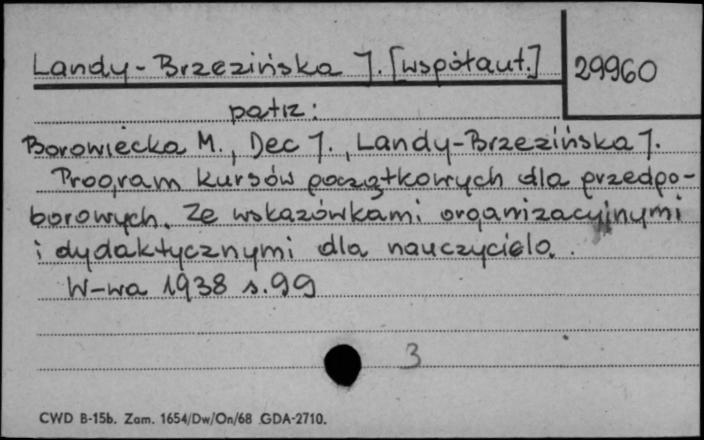 Landy-Brzezińska J. [współaut.] 29960
patrz:
Borowiecka M., Dec J., Landy-Brzezińska J.
Program kursów początkowych dla przedpo-
borowych. Ze wskazówkami organizacyjnymi
i dydaktycznymi dla nauczyciela.
W-wa 1938 s. 99
3
CWD B-15b. Zam. 1654/Dw/On/68 GDA-2710.